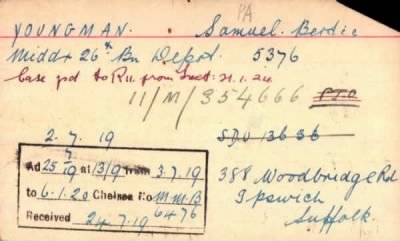 PA
YOUNGMAN. Samuel Berdie
Middx 26th Bn Depot. 5376
Case pd to R11. from Sect: 21.1.24
11/M/354666 PTO
2.7.19 SDU 13636
Ad 25/7/19 at 13/9 from 3.7.19
to 6.1.20 Chelsea No M.M.B 6476
Received 24.7.19
388 Woodbridge Rd
Ipswich
Suffolk.